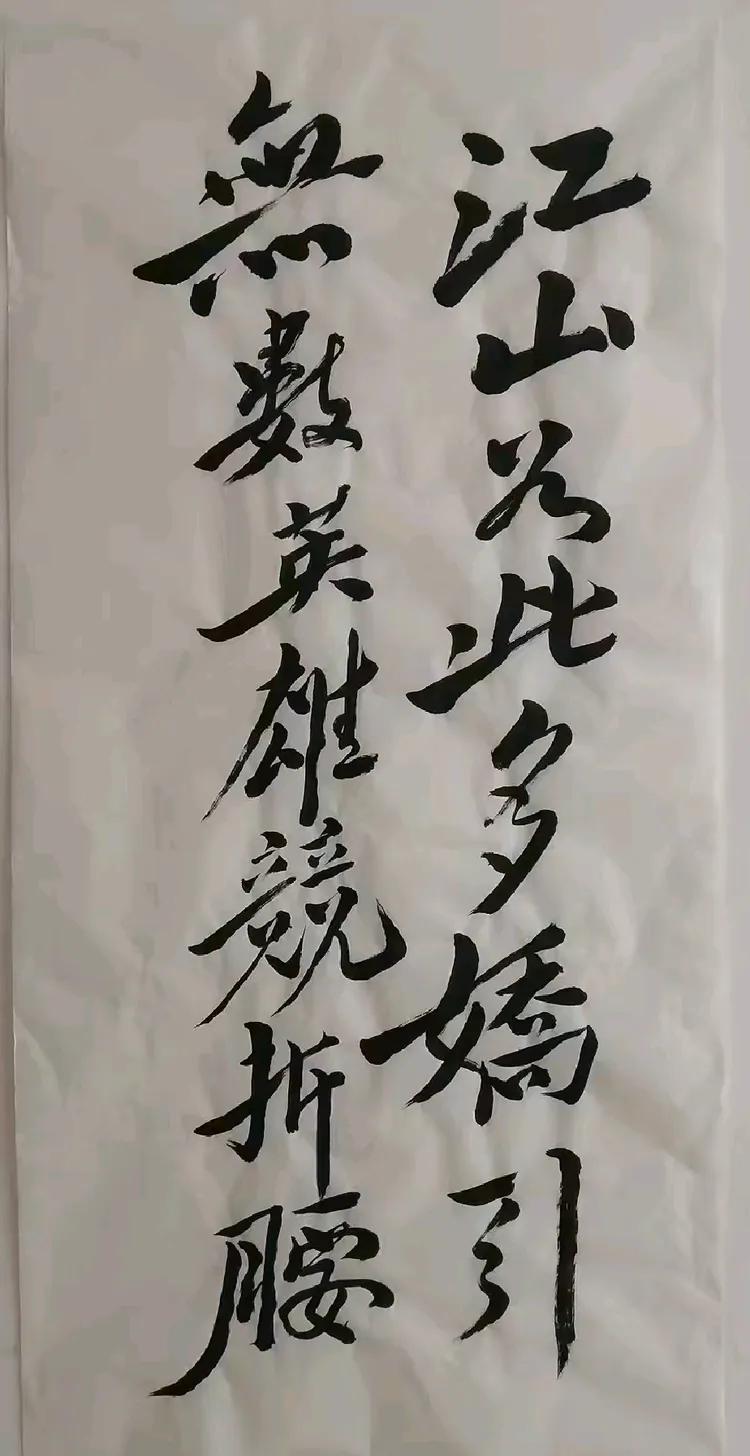 江山如此多嬌引
無數英雄競折腰